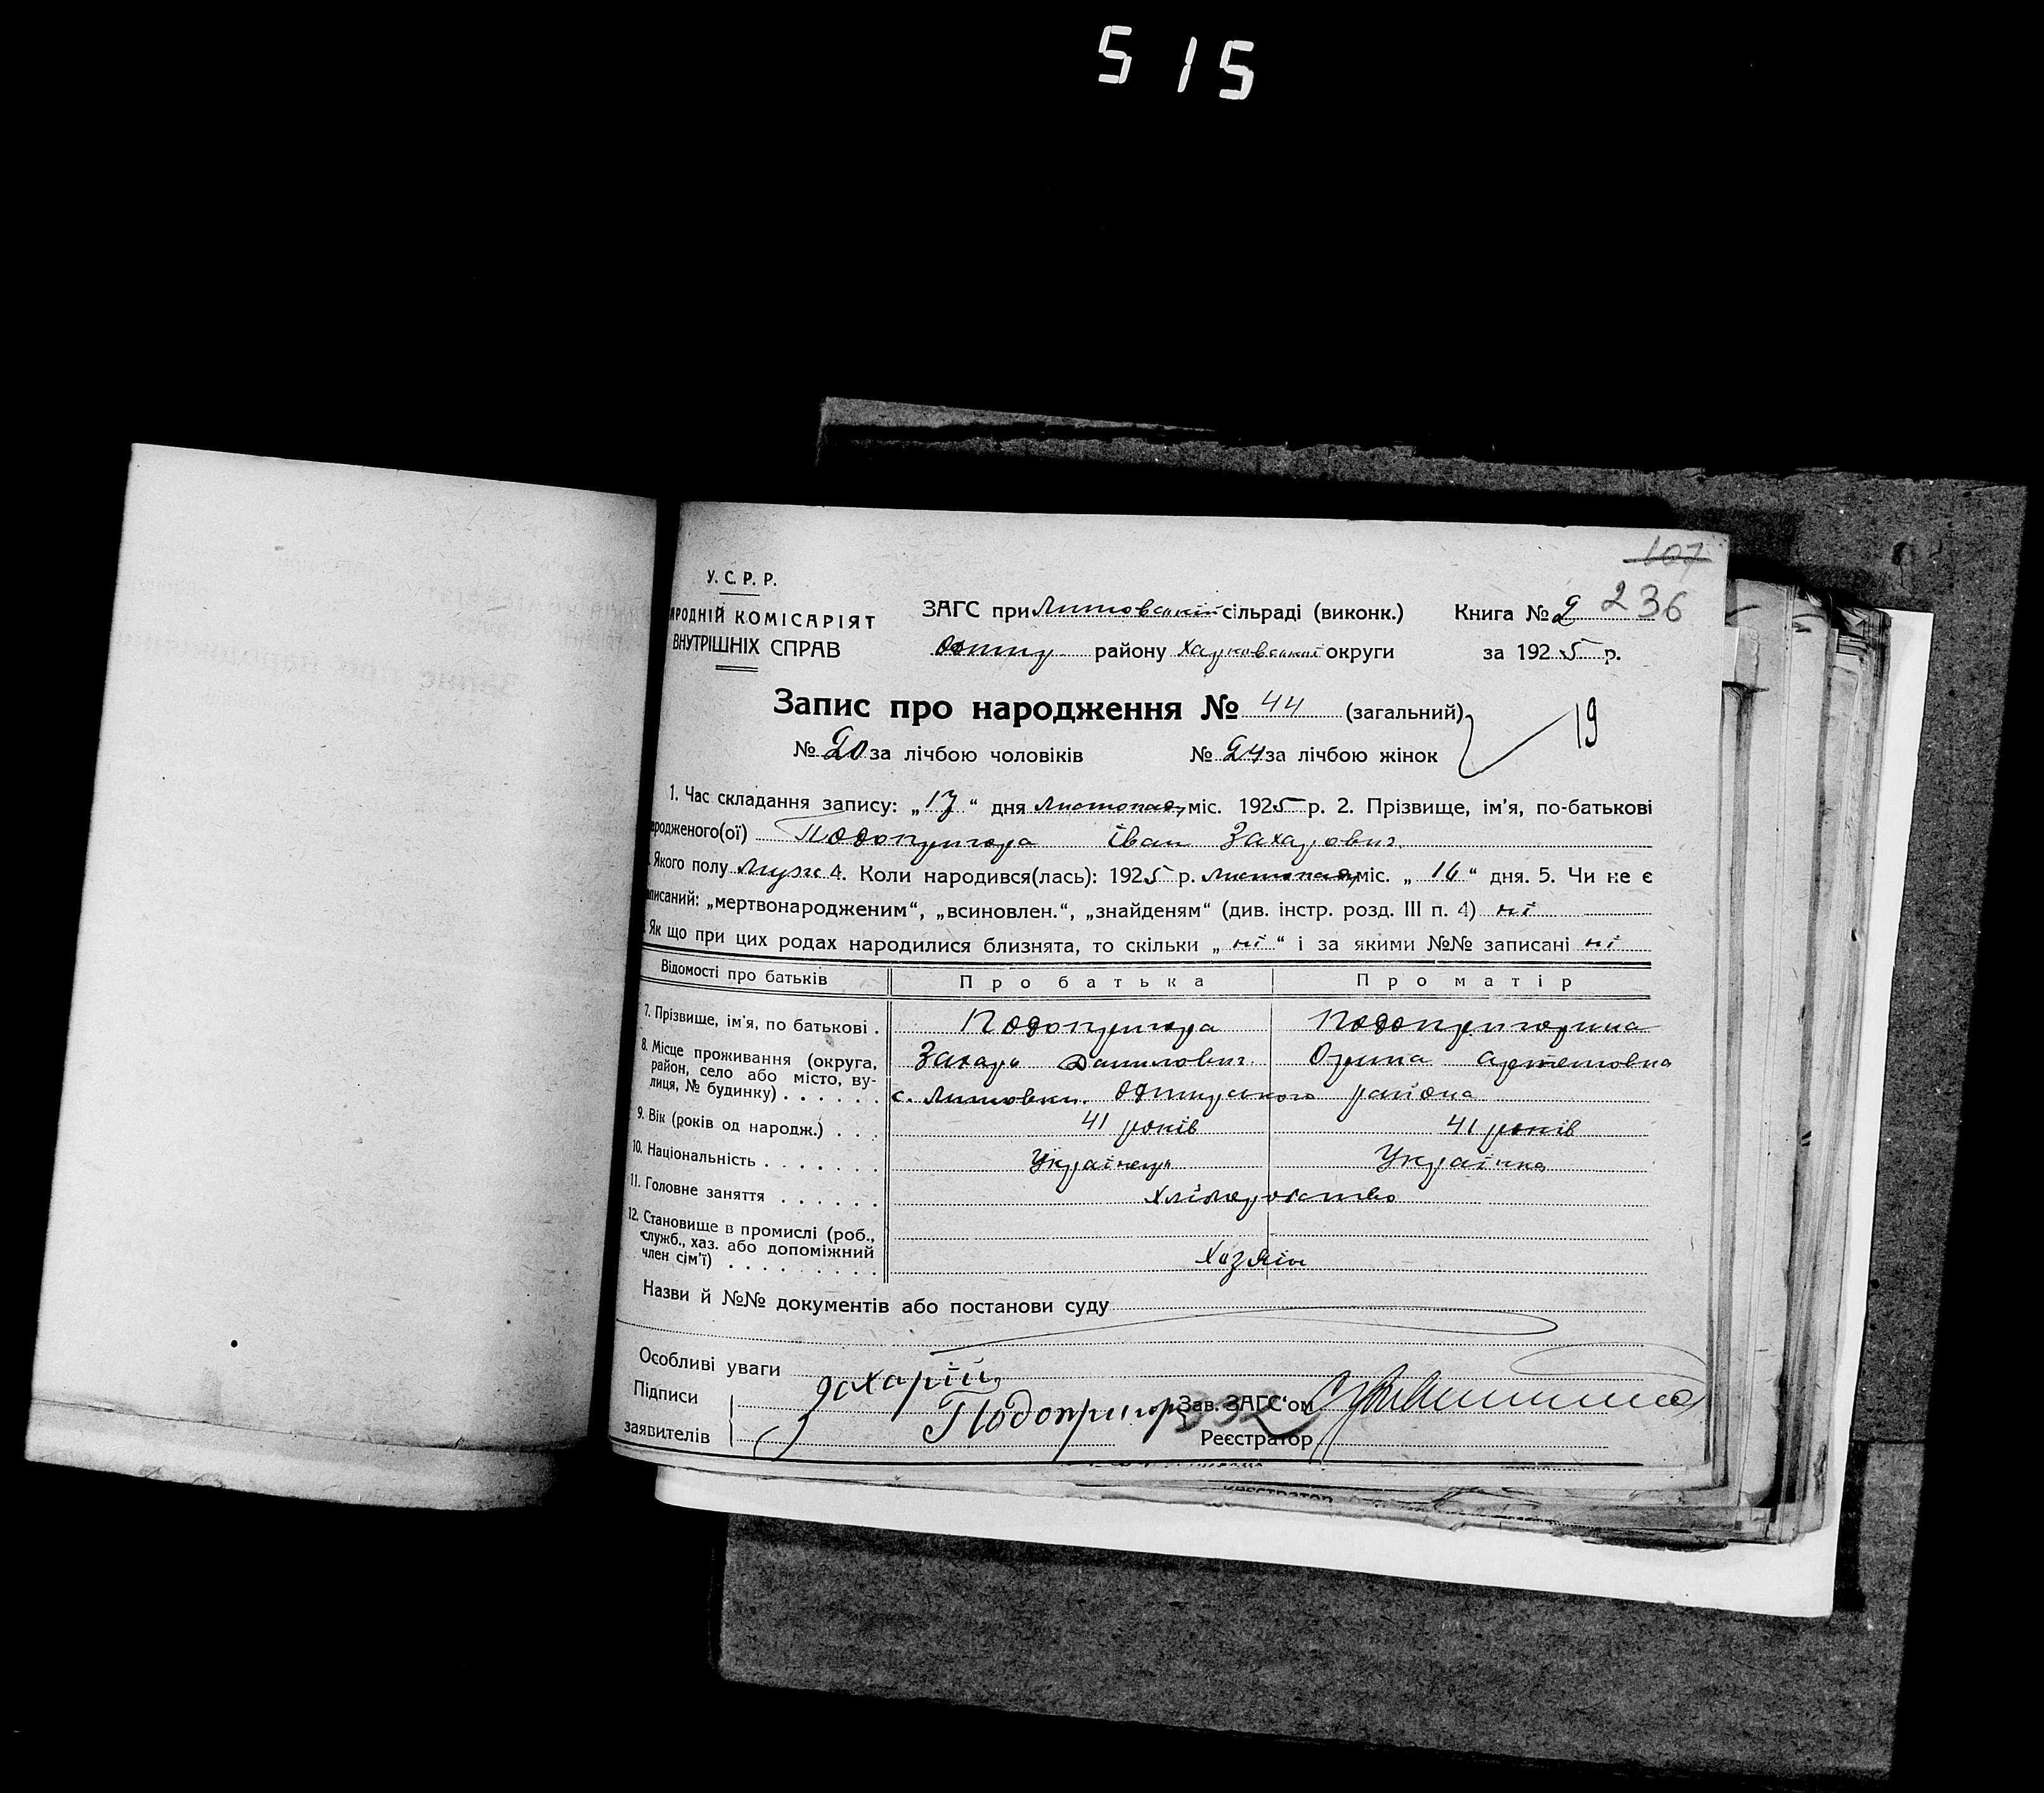 515
107
236
У. С. Р. Р.
РОДНІЙ КОМІСАРІЯТ
ВНУТРІШНІХ СПРАВ
ЗАГС при Литовській сільраді (виконк.)
Книга № 2
району Харковської округи
за 1925 р.
Запис про народження № 44 (загальний)
19
№ 20 за лічбою чоловіків № 24 за лічбою жінок
1. Час складання запису: „17“ дня Листопад міс. 1925 р. 2. Прізвище, ім'я, по-батькові
родженого(ої) Подопригора Іван Захарович
Якого полу муж 4. Коли народився(лась): 1925 р. листопад міс. „16“ дня. 5. Чи не є
писаний: „мертвонародженим“, „всиновлен.“, „знайденям“ (див. інстр. розд. III п. 4) ні
Як що при цих родах народилися близнята, то скільки „ні“ і за якими №№ записані ні
Відомості про батьків
Про батька
Про матір
7. Прізвище, ім'я, по батькові .
Подопригора
Подопригорина
8. Місце проживання (округа,
район, село або місто, ву-
лиця, № будинку) . . . . . .
Захарь Данилович
Орина Артемовна
с. Литовки. района
9. Вік (років од народж.) . . .
41 років
41 років
10. Національність . . . . . . .
Українець
Українка
11. Головне заняття . . . . . .
Хліборобство
12. Становище в промислі (роб.,
служб., хаз. або допоміжний
член сім'ї) . . . . . . . . .
Хазяїн
Назви й №№ документів або постанови суду
Особливі уваги
Підписи
заявителів
Захарій
Подопригора
332
Зав. ЗАГС'ом
Реєстратор